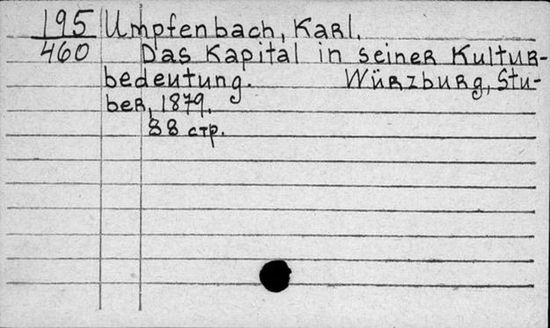 195 Umpfenbach, Karl.
460 Das Kapital in seiner Kultur-
bedeutung. Würzburg, Stu-
ber, 1879.
88 стр.